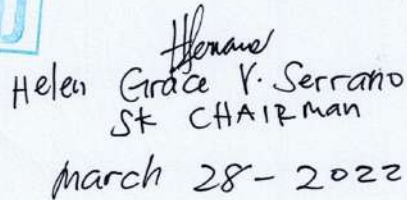 Helen Grace V. Serrano
SK CHAIRman
March 28-2022